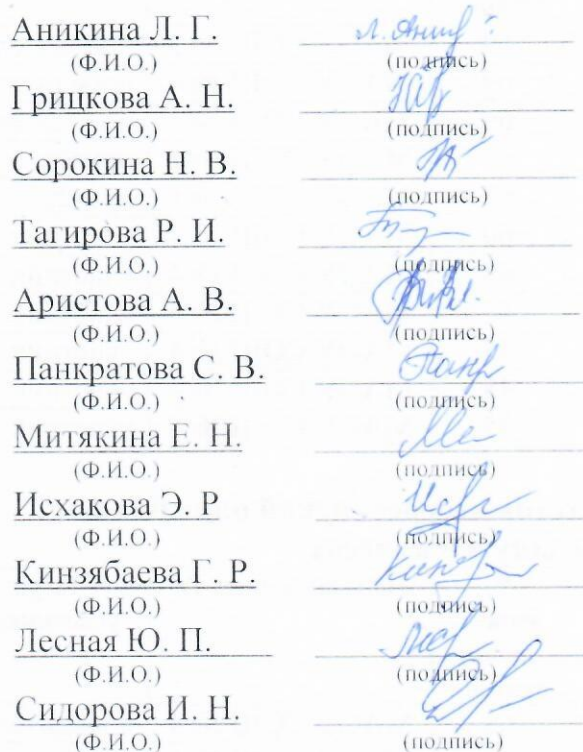 Аникина Л. Г.
(Ф.И.О.) (подпись)
Грицкова А. Н.
(Ф.И.О.) (подпись)
Сорокина Н. В.
(Ф.И.О.) (подпись)
Тагирова Р. И.
(Ф.И.О.) (подпись)
Аристова А. В.
(Ф.И.О.) (подпись)
Панкратова С. В.
(Ф.И.О.) (подпись)
Митякина Е. Н.
(Ф.И.О.) (подпись)
Исхакова Э. Р
(Ф.И.О.) (подпись)
Кинзябаева Г. Р.
(Ф.И.О.) (подпись)
Лесная Ю. П.
(Ф.И.О.) (подпись)
Сидорова И. Н.
(Ф.И.О.) (подпись)